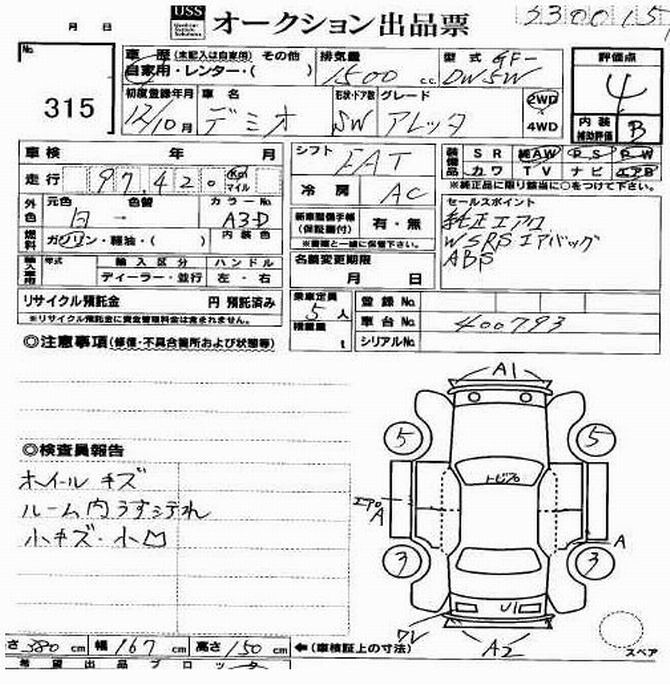 USS オークション出品票
月 日
No. 315
車歴 (未記入は自家用) その他
自家用・レンター・( )
排気量 1500 c.c.
型式 GF-DW5W
評価点 4
内装補助評価 B
初度登録年月 12/10月
車名 デミオ
形状・ドア数 SW
グレード アレッタ
2WD
4WD
車検 年 月
走行 97,420 Km マイル
外色 元色 白 色替 ー カラーNo. A3D
燃料 ガソリン・軽油・( ) 内装色
年式 輸入区分 ハンドル
ディーラー・並行 左・右
リサイクル預託金 円 預託済み
※リサイクル預託金に資金管理料金は含まれません。
シフト FAT
冷房 AC
新車整備手帳(保証書付) 有・無
※書類と一緒に保管下さい。
名義変更期限
月 日
乗車定員 5人
積載量 t
装備品 SR 純AW PS PW
カワ TV ナビ エアB
※純正品に限り該当に○をつけて下さい。
セールスポイント
純正エアロ
WSRSエアバッグ
ABS
登録No.
車台No. 400793
シリアルNo.
◎注意事項(修復・不具合箇所および状態等)
◎検査員報告
ホイールキズ
ルーム内うすヨゴれ
小キズ・小凹
A1
5
5
トビプロ
エアロ
A
A
3
3
U1
ワレ
A2
スペア
さ 380 cm 幅 167 cm 高さ 150 cm ←(車検証上の寸法)
希望出品ブロック